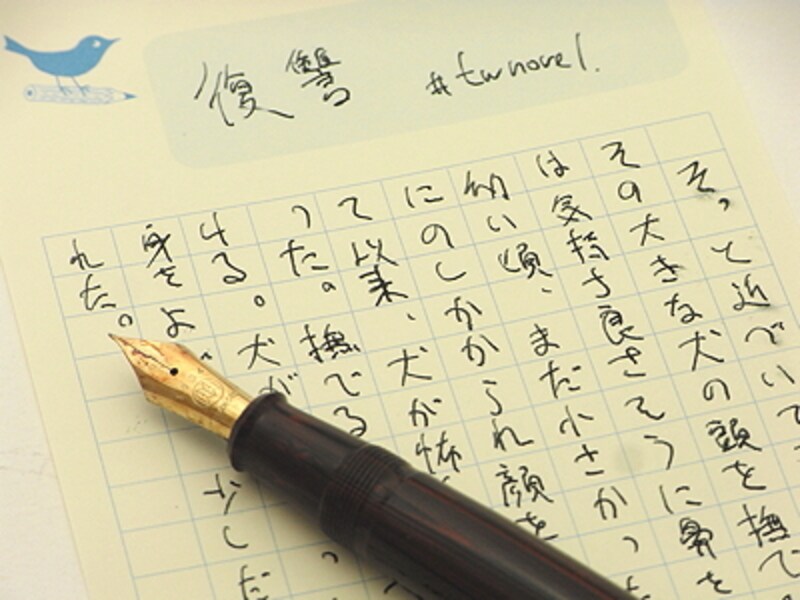 復讐 #twnovel.
そっと近づいて
その大きな犬の頭を撫で
は気持ち良さそうに鼻を
幼い頃、まだ小さかっ
にのしかかられ顔を
て以来、犬が怖
った。撫でる
ける。犬が 少しだ
身をよ
れた。